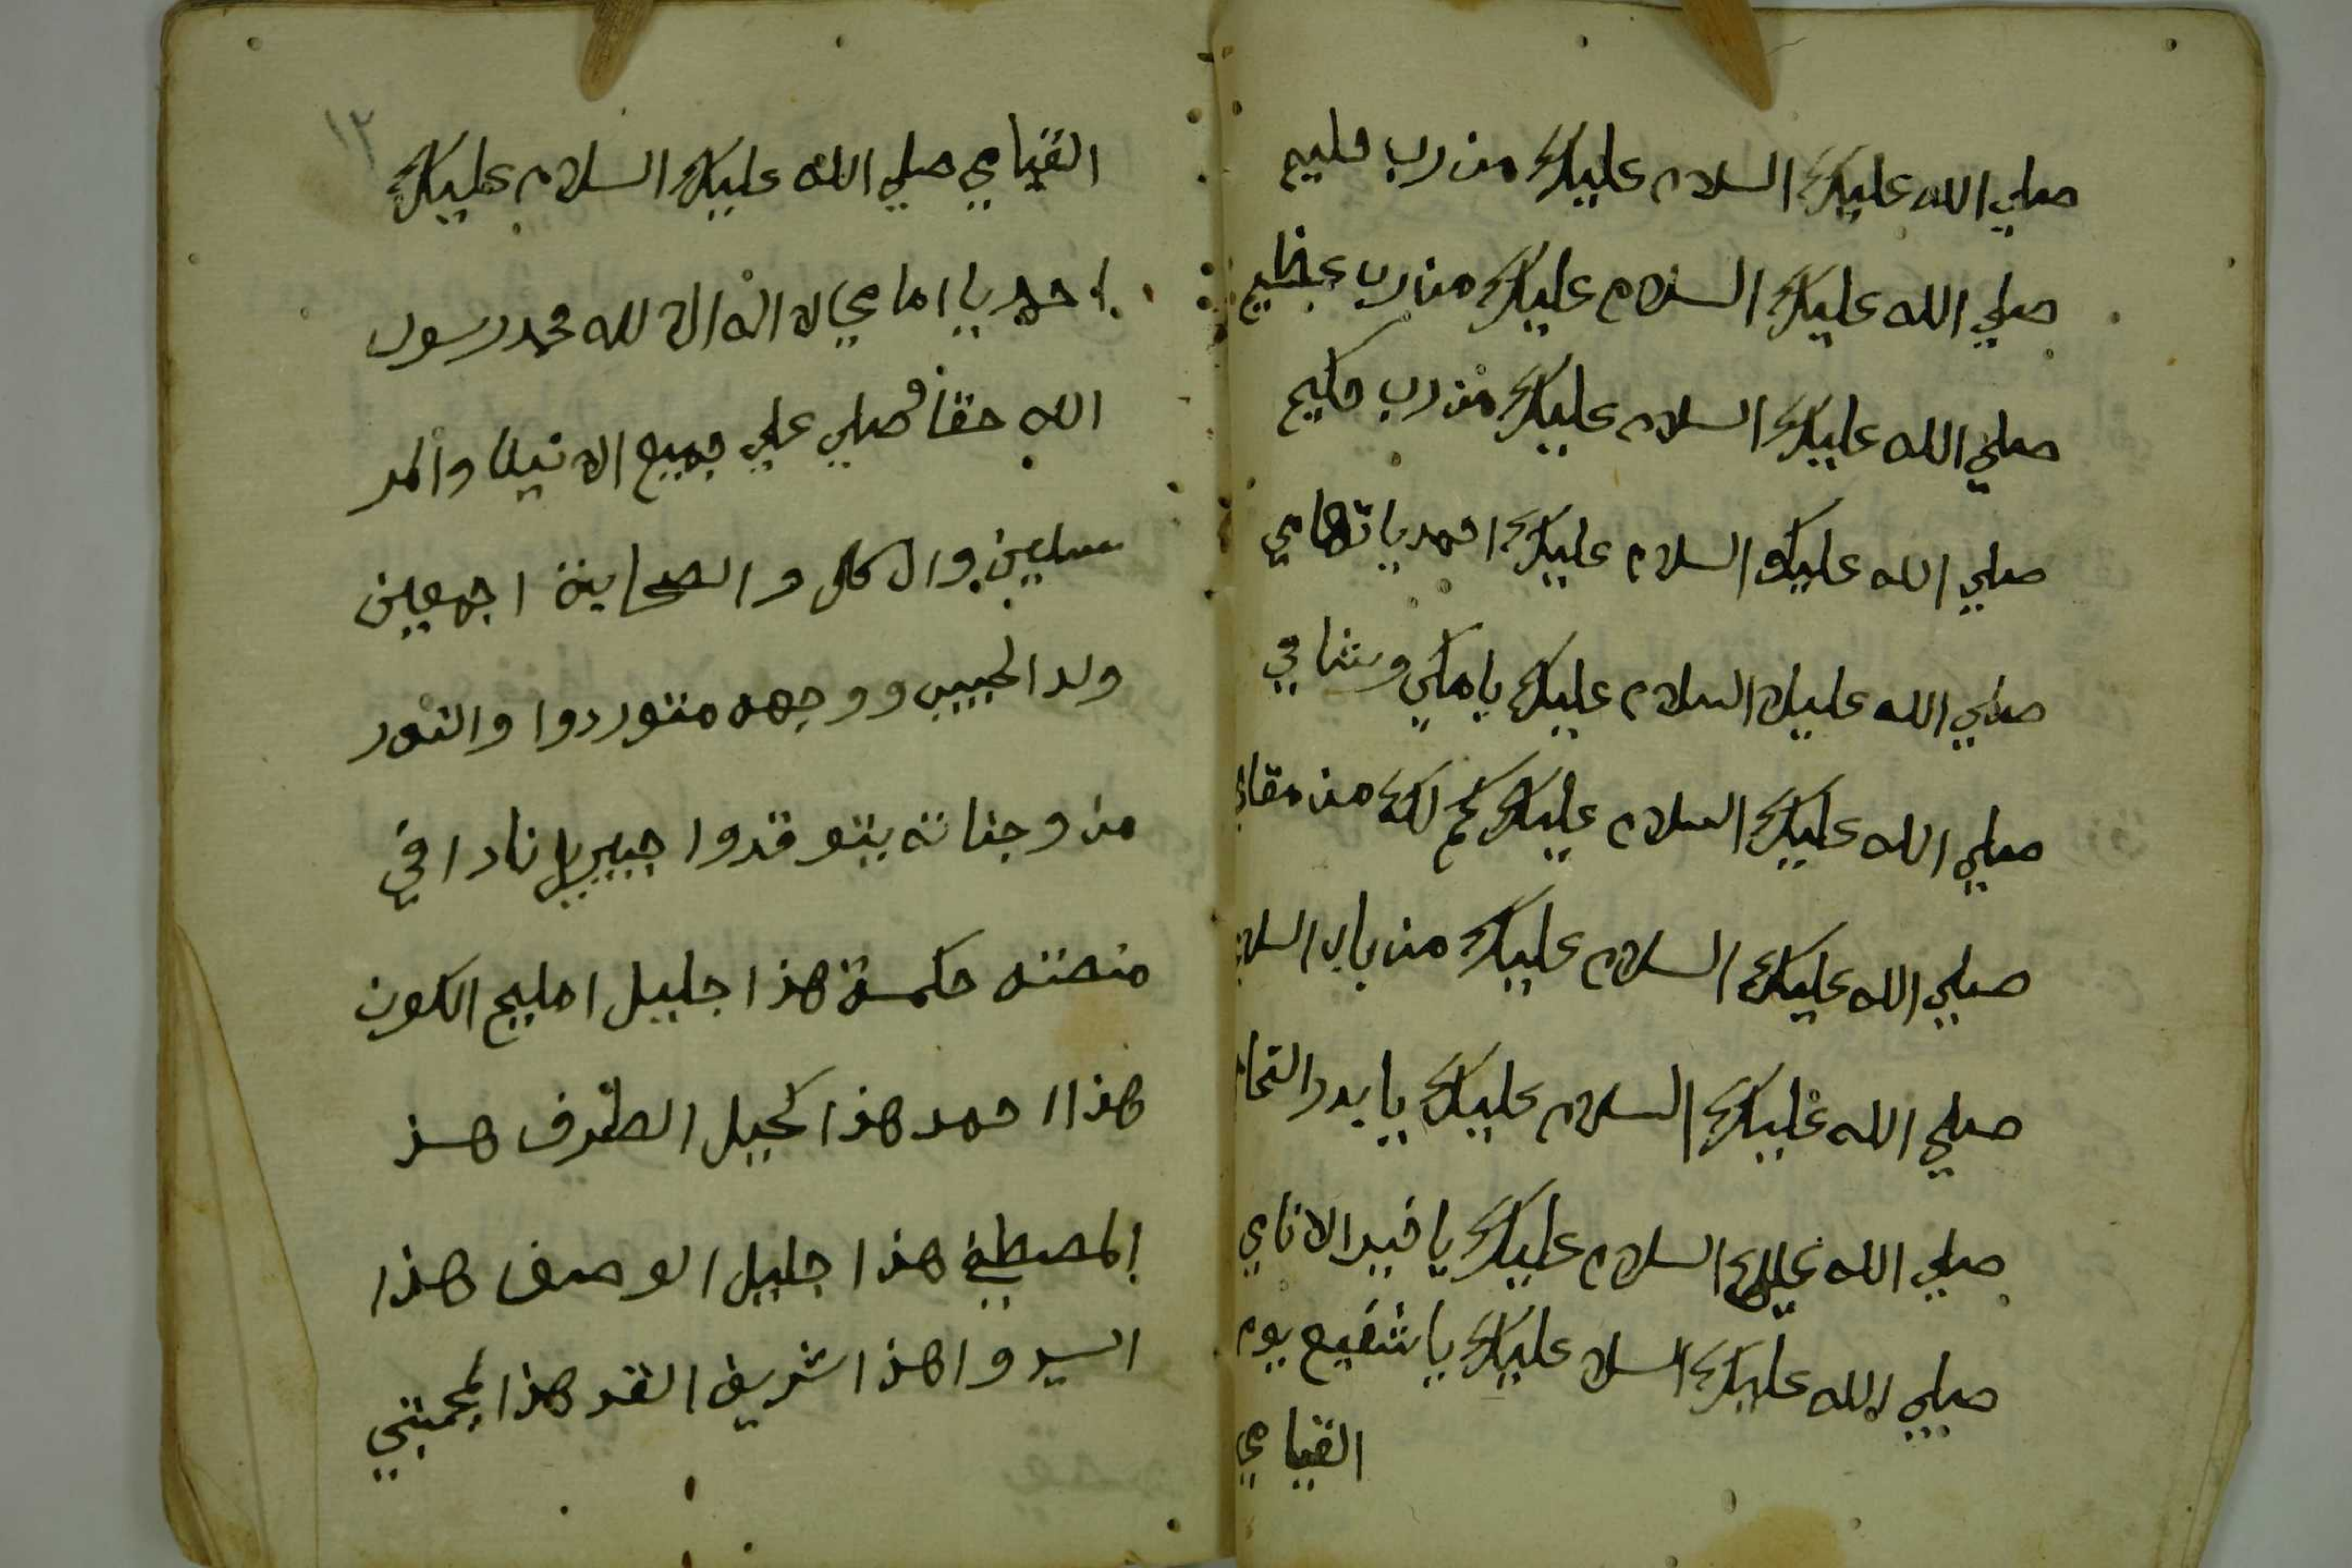 صلي الله عليك السلام عليك من رب حليم
صلي الله عليك السلام عليك من رب عظيم
صلي الله عليك السلام عليك من رب حكيم
صلي الله عليك السلام عليك احمد يا تهامي
صلي الله عليك السلام عليك يا مكي وشامي
صلي الله عليك السلام عليك كم لك من مقام
صلي الله عليك السلام عليك من باب السلام
صلي الله عليك السلام عليك يا بدر التمام
صلي الله عليك السلام عليك يا خير الانامي
صلي الله عليك السلا عليك يا شفيع يوم
القيامي
١٢
القيامي صلي الله عليك السلام عليك
احمد يا امامي لا اله الا لله محمد رسول
الله حقا وصلي علي جميع الانبيا والمر
سلين وال كل والصحابة اجمعين
ولد الحبيب ووجهه متوردوا والنور
من وجناته يتوقدوا جبيريل نادا في
منصته حكمة هذا جليل امليح الكون
هذا احمد هذا كحيل الطرف هذ
المصطفي هذا جليل الوصف هذا
السيدوا هذا شريف القد هذا لمجتبي